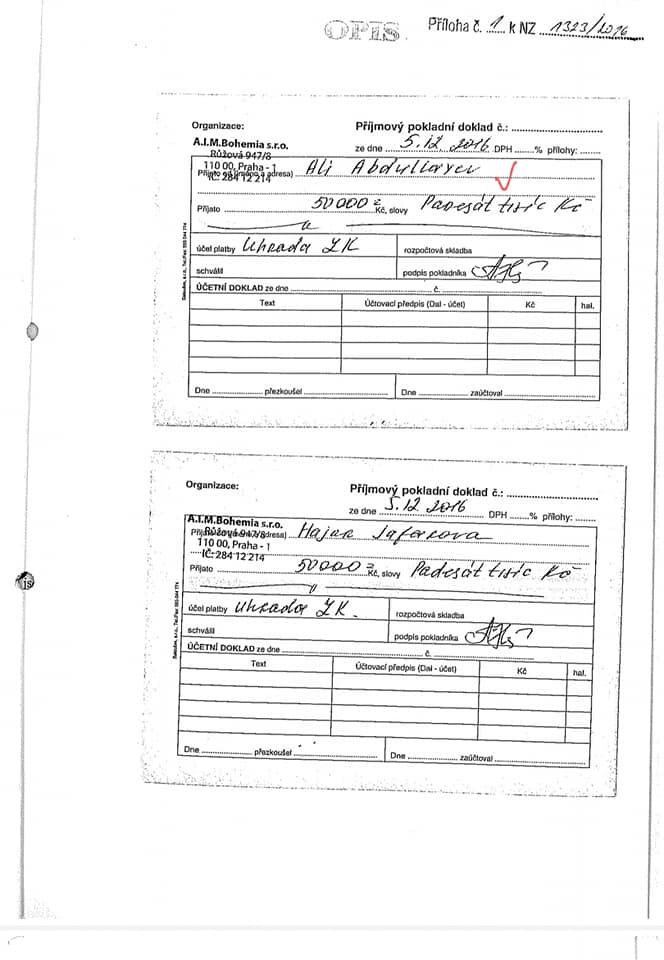 OPIS
Příloha č. 1 k NZ 1323/2016
Organizace:
Příjmový pokladní doklad č.:
A.I.M.Bohemia s.r.o.
Růžová 947/8
110 00, Praha - 1
IČ: 284 12 214
ze dne 5.12 2016 DPH % přílohy:
Přijato od (jméno a adresa) Ali Abdullayev
Přijato 50000 Kč, slovy Padesát tisíc Kč
účel platby Uhrada ZK
rozpočtová skladba
schválil
podpis pokladníka
ÚČETNÍ DOKLAD ze dne č.
Text Účtovací předpis (Dal - účet) Kč hal.
Dne přezkoušel Dne zaúčtoval
Organizace:
Příjmový pokladní doklad č.:
ze dne 5.12 2016 DPH % přílohy:
A.I.M.Bohemia s.r.o.
Růžová 947/8
110 00, Praha - 1
IČ: 284 12 214
Hajar Jafarova
Přijato 50000 Kč, slovy Padesát tisíc Kč
účel platby Uhrada ZK.
rozpočtová skladba
schválil
podpis pokladníka
ÚČETNÍ DOKLAD ze dne č.
Text Účtovací předpis (Dal - účet) Kč hal.
Dne přezkoušel Dne zaúčtoval